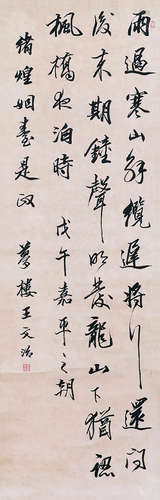 雨過寒山解纜遲將行還問
後來期鐘聲明發龍山下猶認
楓橋夜泊時 戊午嘉平之朝
緒煌姻臺是政 夢樓王文治